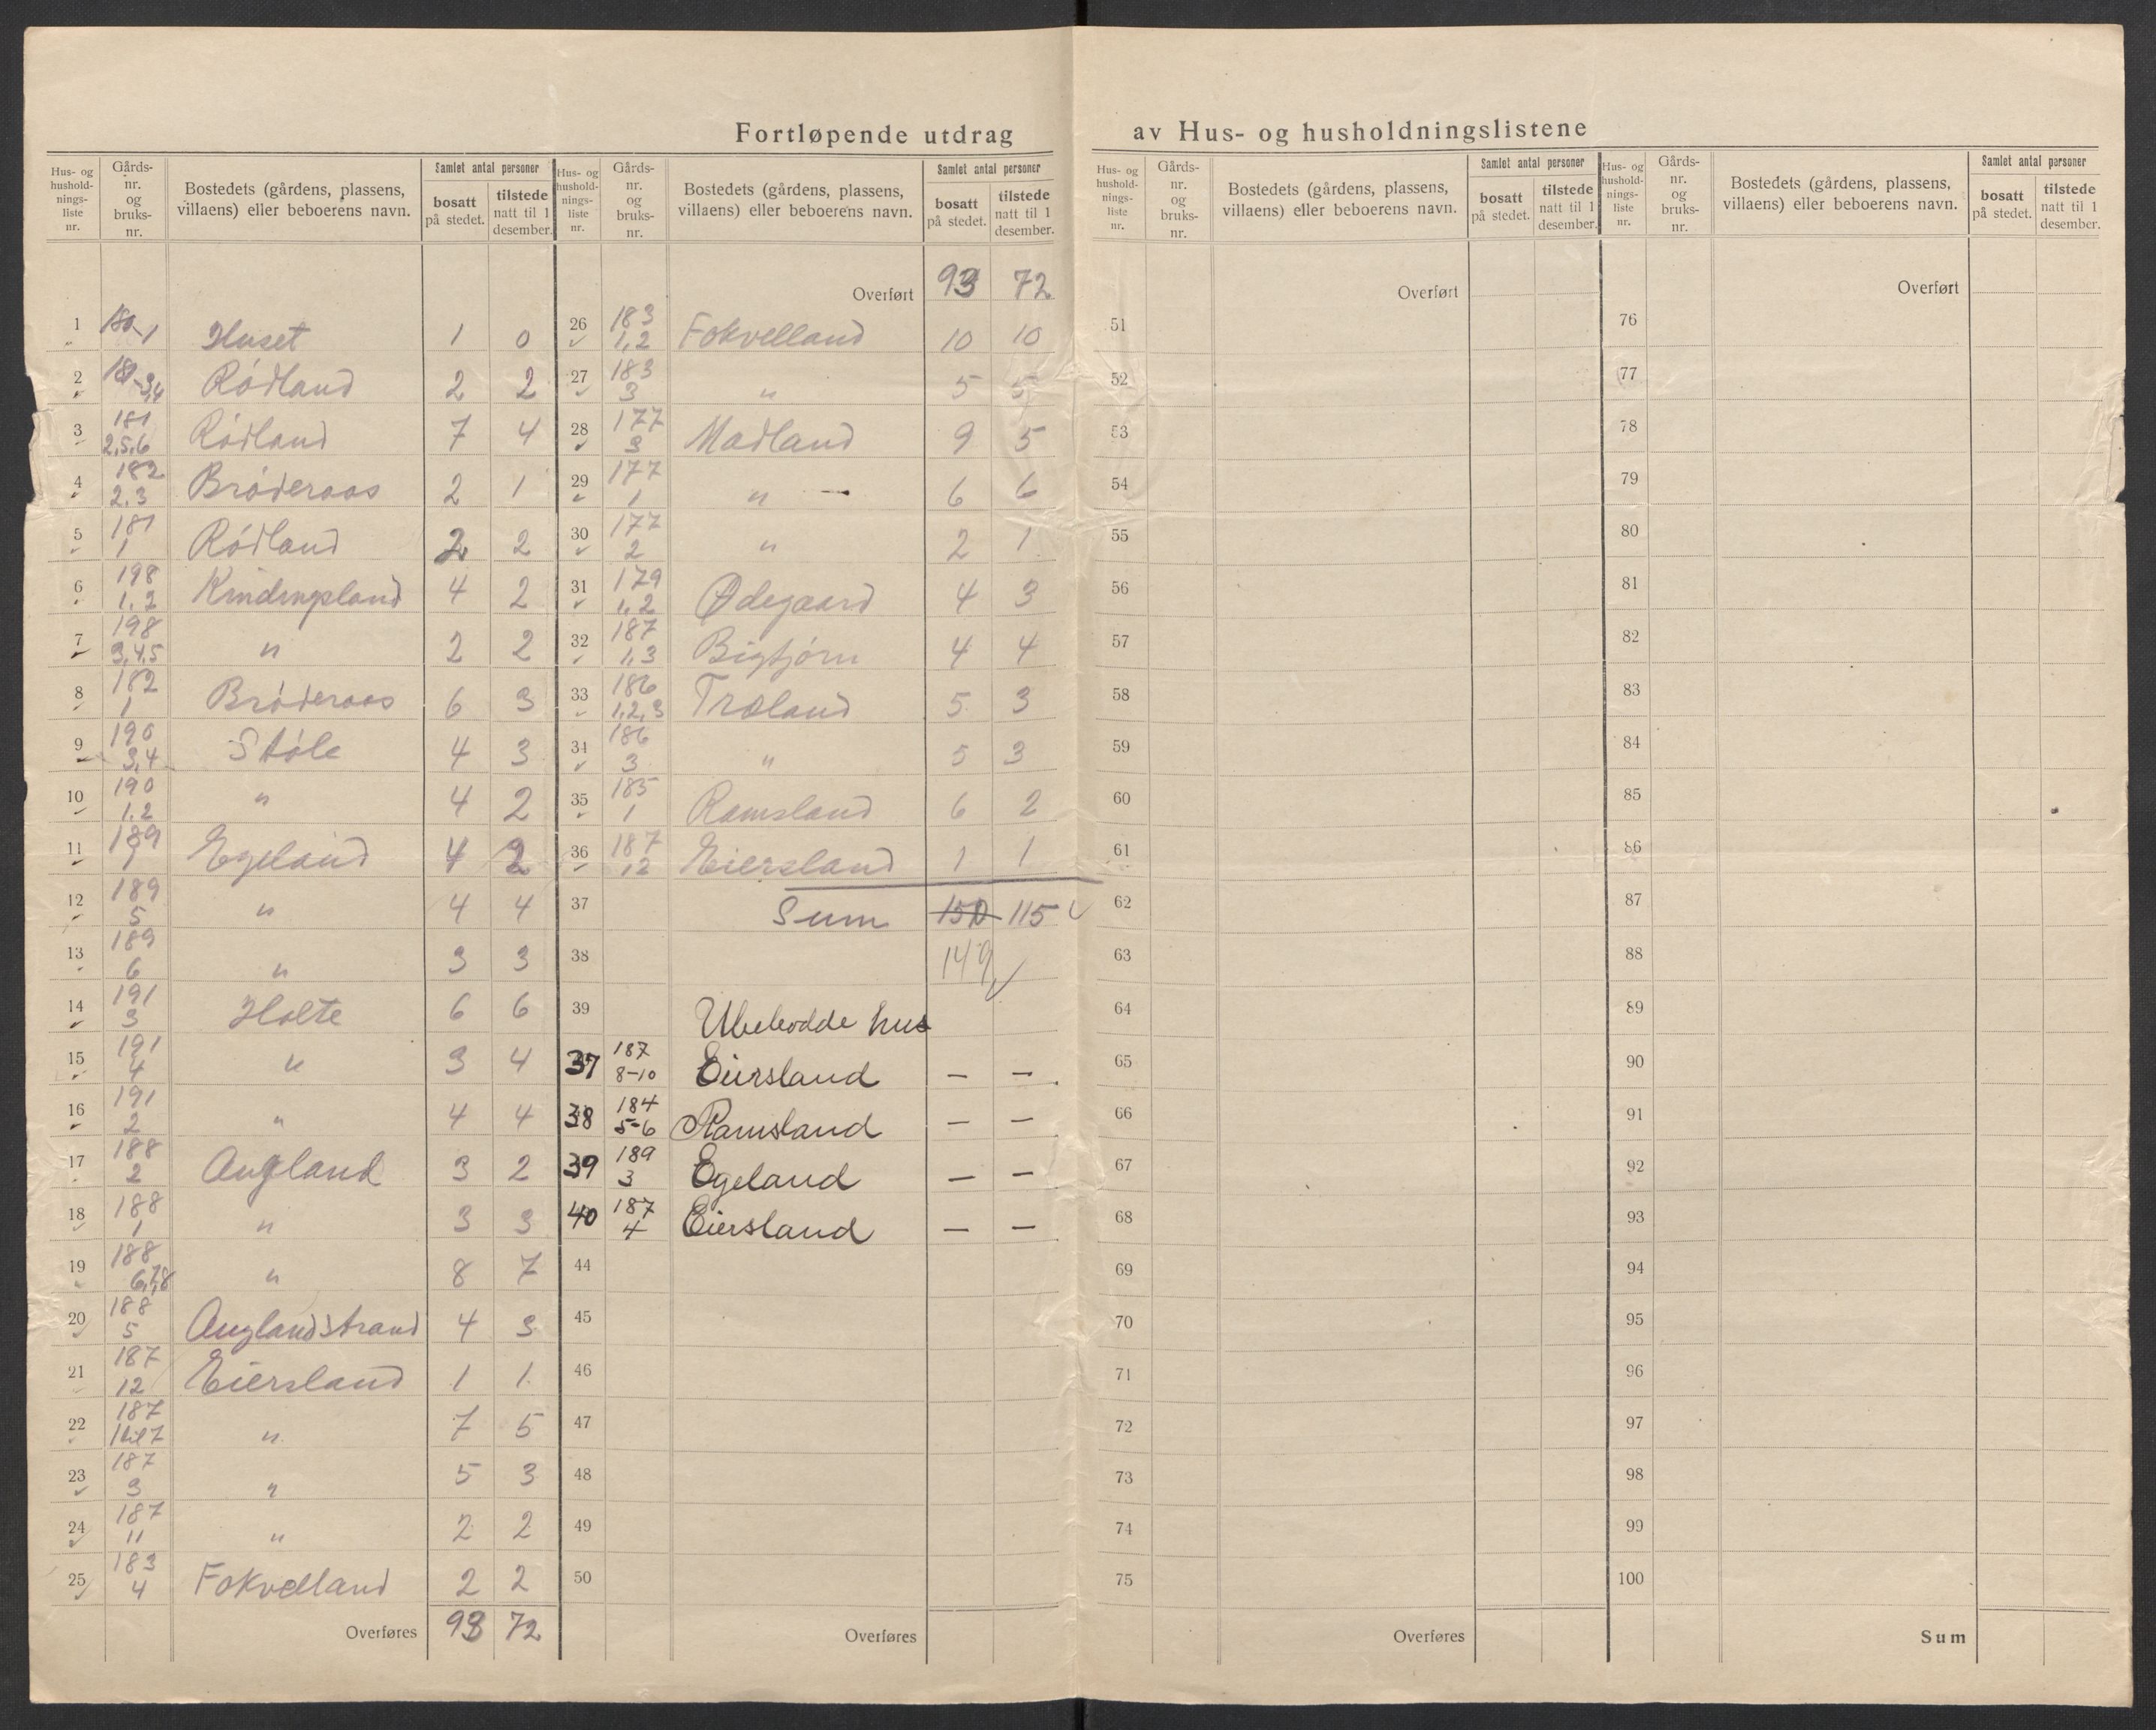 Fortløpende utdrag av Hus- og husholdningslistene
Hus- og hushold-nings-liste nr. Gårds-nr. og bruks-nr. Bostedets (gårdens, plassens, villaens) eller beboerens navn. Samlet antal personer bosatt på stedet. tilstede natt til 1 desember.
1 180-1 Huset 1 0
2 181-3,4 Rødland 2 2
3 181 2,5,6 Rødland 7 4
4 182 2.3 Brøderoos 2 1
5 181 1 Rødland 2 2
6 198 1,2 Kindingsland 4 2
7 198 3,4,5 " 2 2
8 182 1 Brøderoos 6 3
9 190 3,4 Støle 4 3
10 190 1.2 " 4 2
11 189 1 Egeland 4 2
12 189 5 " 4 4
13 189 6 " 3 3
14 191 3 Holte 6 6
15 191 4 " 3 4
16 191 2 " 4 4
17 188 2 Augland 3 2
18 188 1 " 3 3
19 188 6,7,8 " 8 7
20 188 5 Auglandstrand 4 3
21 187 12 Eiersland 1 1
22 187 1til7 " 7 5
23 187 3 " 5 3
24 187 11 " 2 2
25 183 4 Fokvelland 2 2
Overføres 93 72
Hus- og hushold-nings-liste nr. Gårds-nr. og bruks-nr. Bostedets (gårdens, plassens, villaens) eller beboerens navn. Samlet antal personer bosatt på stedet. tilstede natt til 1 desember.
Overført 93 72
26 183 1,2 Fokvelland 10 10
27 183 3 " 5 5
28 177 3 Madland 9 5
29 177 1 " 6 6
30 177 2 " 2 1
31 179 1,2 Ødegaard 4 3
32 187 1,3 Bigtjørn 4 4
33 186 1,2,3 Troland 5 3
34 186 3 " 5 3
35 185 1 Ramsland 6 2
36 187 12 Eiersland 1 1
37 Sum 150 115
38 149
39 Ubebodde hus
37 187 8-10 Eiersland — —
38 184 5-6 Ramsland — —
39 189 3 Egeland — —
40 187 4 Eiersland — —
44
45
46
47
48
49
50
Overføres
Hus- og hushold-nings-liste nr. Gårds-nr. og bruks-nr. Bostedets (gårdens, plassens, villaens) eller beboerens navn. Samlet antal personer bosatt på stedet. tilstede natt til 1 desember.
Overført
51
52
53
54
55
56
57
58
59
60
61
62
63
64
65
66
67
68
69
70
71
72
73
74
75
Overføres
Hus- og hushold-nings-liste nr. Gårds-nr. og bruks-nr. Bostedets (gårdens, plassens, villaens) eller beboerens navn. Samlet antal personer bosatt på stedet. tilstede natt til 1 desember.
Overført
76
77
78
79
80
81
82
83
84
85
86
87
88
89
90
91
92
93
94
95
96
97
98
99
100
Sum